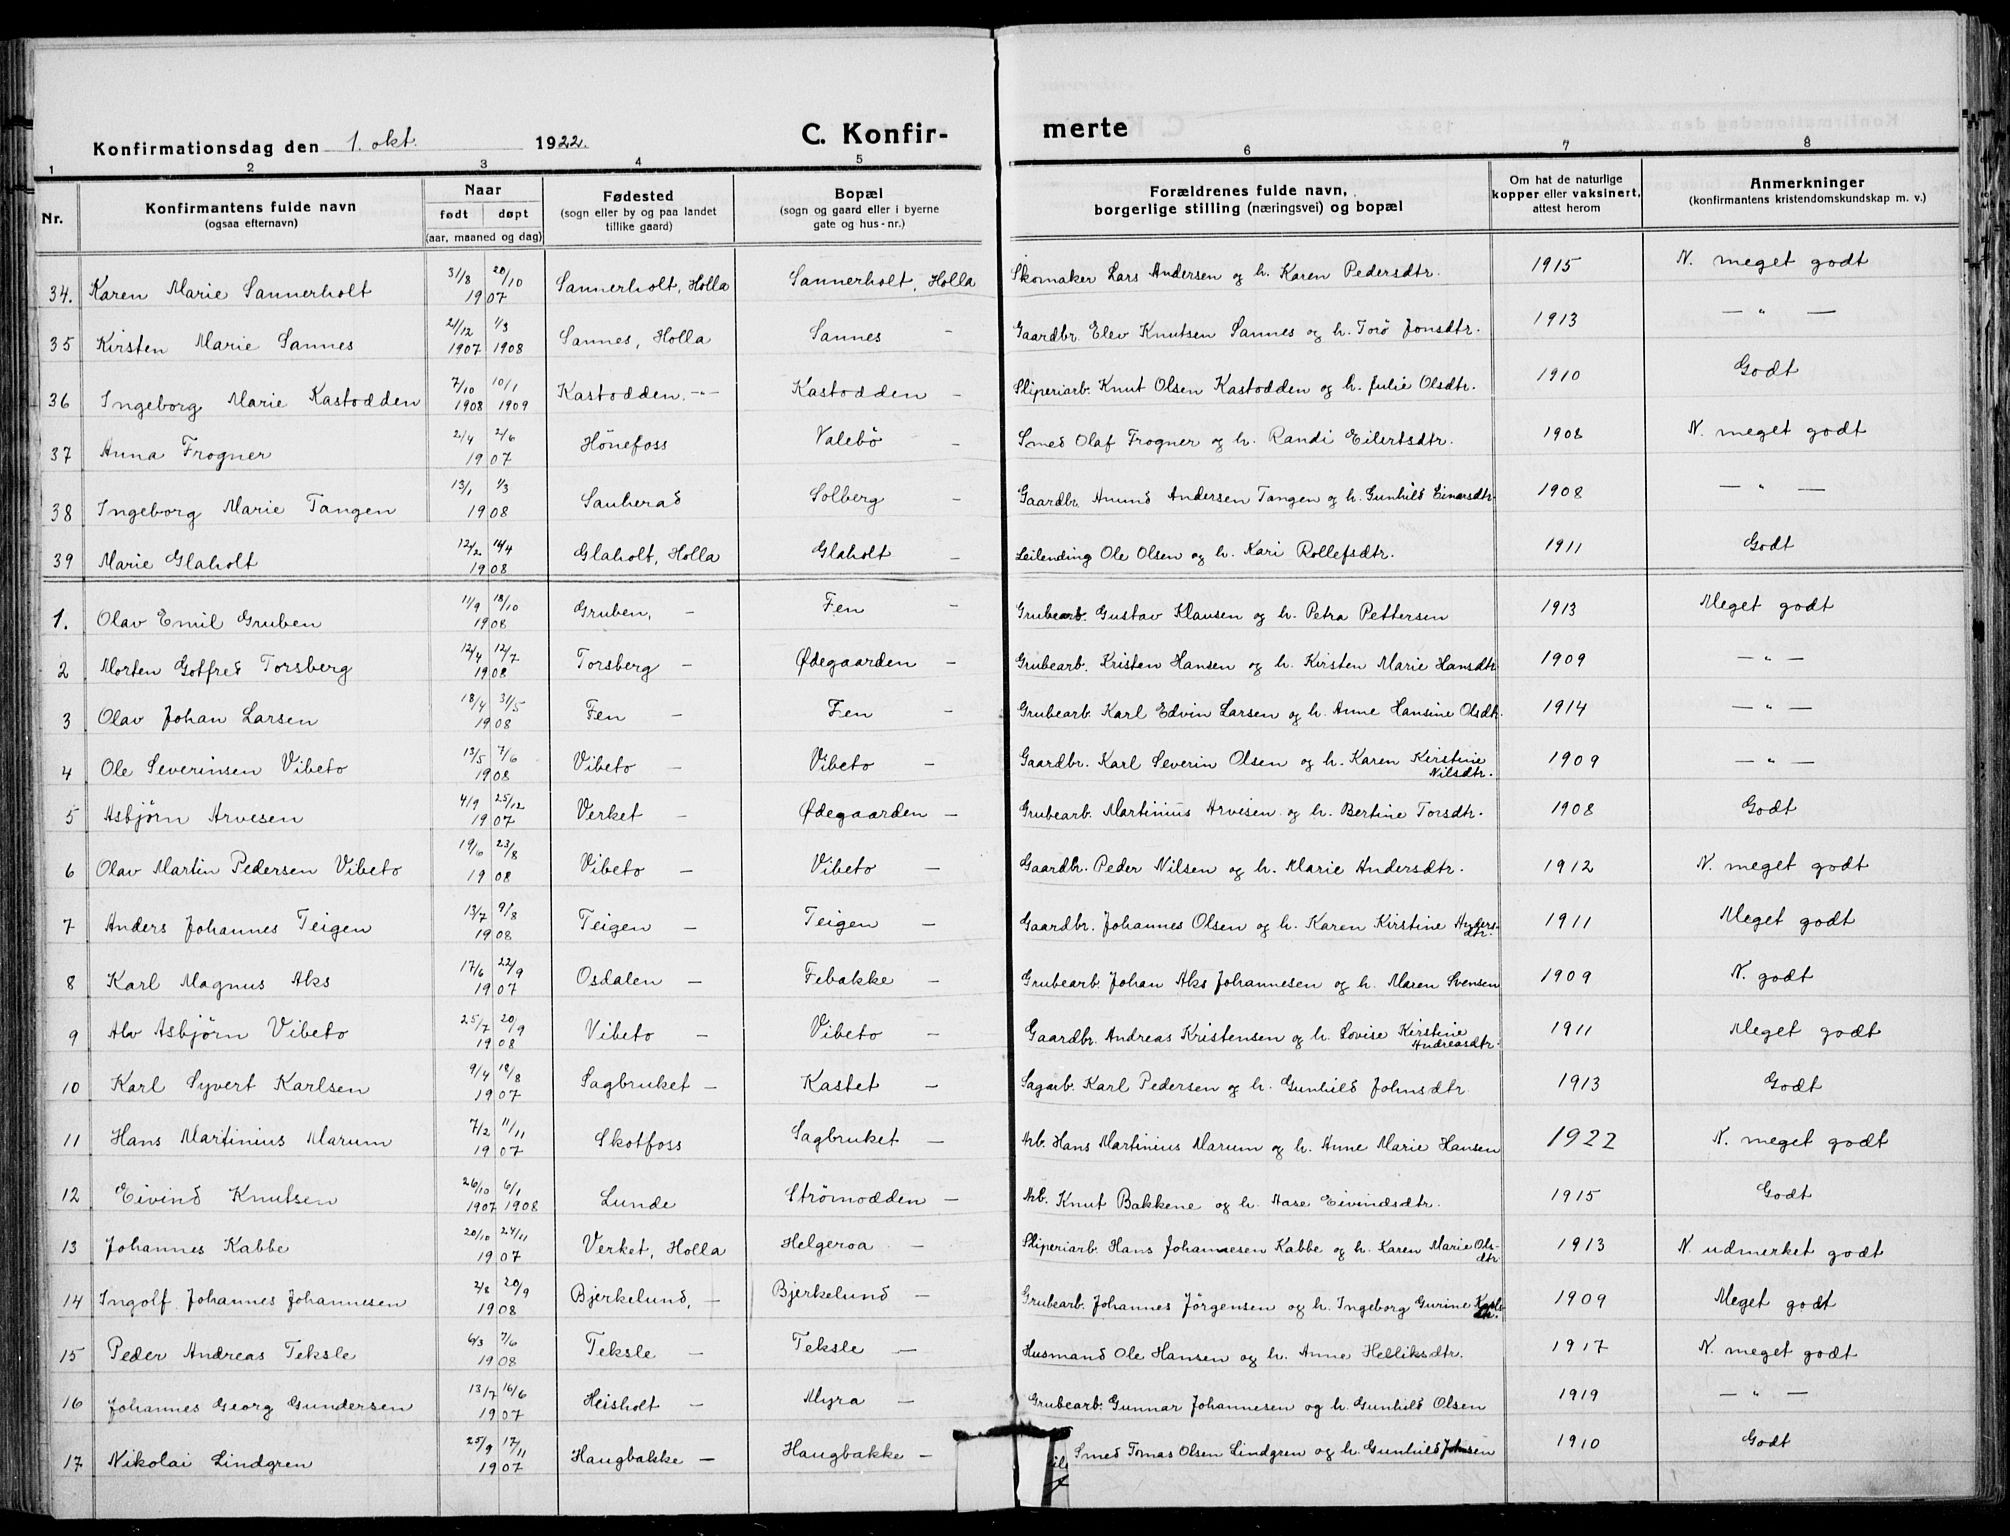 Konfirmationsdag den 1. okt. 1922. C. Konfir- merte
1 2 3 4 5 6 7 8
Nr. Konfirmantens fulde navn (ogsaa efternavn) Naar født døpt (aar, maaned og dag) Fødested (sogn eller by og paa landet tillike gaard) Bopæl (sogn og gaard eller i byerne gate og hus-nr.) Forældrenes fulde navn, borgerlige stilling (næringsvei) og bopæl Om hat de naturlige kopper eller vaksinert, attest herom Anmerkninger (konfirmantens kristendomskundskap m. v.)
34. Karen Marie Sannerholt 31/8 20/10 1907 Sannerholt, Holla Sannerholt, Holla Skomaker Lars Andersen og h. Karen Pedersdtr. 1915 N. meget godt
35 Kirsten Marie Sannes 21/12 1/3 1907 1908 Sannes, Holla Sannes - Gaardbr. Elev Knutsen Sannes og h. Torø Jonsdtr. 1913 — " —
36 Ingeborg Marie Kastodden 7/10 10/1 1908 1909 Kastodden, -"- Kastodden - Sliperiarb. Knut Olsen Kastodden og h. Julie Olsdtr. 1910 Godt
37 Anna Frogner 2/4 2/6 1907 Hönefoss Valebö - Smed Olaf Frogner og h. Randi Eilertsdtr. 1908 N. meget godt
38 Ingeborg Marie Tangen 13/1 1/3 1908 Sauherad Solberg - Gaardbr. Amund Andersen Tangen og h. Gunhild Einarsdtr. 1908 — " —
39 Marie Glaholt 12/2 14/4 1908 Glaholt, Holla Glaholt - Leilending Ole Olsen og h. Kari Rollefsdtr. 1911 Godt
1. Olav Emil Gruben 11/9 18/10 1908 Gruben, - Fen - Grubearb. Gustav Klausen og h. Petra Pettersen 1913 Meget godt
2 Morten Gotfred Torsberg 12/4 12/7 1908 Torsberg - Ødegaarden - Grubearb. Kristen Hansen og h. Kirsten Marie Hansdtr. 1909 — " —
3 Olav Johan Larsen 18/4 31/5 1908 Fen - Fen - Grubearb. Karl Edvin Larsen og h. Anne Hansine Olsdtr. 1914 — " —
4 Ole Severinsen Vibeto 13/5 7/6 1908 Vibeto - Vibeto - Gaardbr. Karl Severin Olsen og h. Karen Kirstine Nilsdtr. 1909 — " —
5 Asbjørn Arvesen 4/9 25/12 1907 Verket - Ødegaarden - Grubearb. Martinius Arvesen og h. Bertine Torsdtr. 1908 Godt
6 Olav Martin Pedersen Vibeto 19/6 23/8 1908 Vibeto - Vibeto - Gaardbr. Peder Nilsen og h. Marie Andersdtr. 1912 N. meget godt
7 Anders Johannes Teigen 13/7 9/8 1908 Teigen - Teigen - Gaardbr. Johannes Olsen og h. Karen Kirstine Anders-dtr. 1911 Meget godt
8 Karl Magnus Aks 17/6 22/9 1907 Osdalen - Febakke - Grubearb. Johan Aks Johannesen og h. Maren Svensen 1909 N. godt
9 Alv Asbjørn Vibeto 25/7 20/9 1908 Vibeto - Vibeto - Gaardbr. Andreas Kristensen og h. Lovise Kirstine Andreasdtr. 1911 Meget godt
10 Karl Syvert Karlsen 9/4 18/8 1907 Sagbruket - Kastet - Sagarb. Karl Pedersen og h. Gunhild Johnsdtr 1913 Godt
11 Hans Martinius Marum 7/2 11/11 1907 Skotfoss Sagbruket - Arb. Hans Martinius Marum og h. Anne Marie Hansen 1922 N. meget godt
12 Eivind Knutsen 26/10 6/1 1907 1908 Lunde Strömodden - Arb. Knut Bakkene og h. Aase Eivindsdtr. 1915 Godt
13 Johannes Kabbe 20/10 24/11 1907 Verket, Holla Helgeroa - Sliperiarb. Hans Johannesen Kabbe og h. Karen Marie Ols-dtr. 1913 N. udmerket godt
14 Ingolf Johannes Johannesen 2/8 20/9 1908 Bjerkelund, - Bjerkelund - Grubearb. Johannes Jørgensen og h. Ingeborg Gurine Karls-dtr. 1909 Meget godt
15 Peder Andreas Teksle 6/3 7/6 1908 Teksle - Teksle - Husmand Ole Hansen og h. Anne Helliksdtr. 1917 N. meget godt
16 Johannes Georg Gundersen 13/7 16/6 1907 Heisholt - Myra - Grubearb. Gunnar Johannesen og h. Gunhild Olsen 1919 — " —
17 Nikolai Lindgren 25/9 17/11 1907 Haugbakke - Haugbakke - Smed Tomas Olsen Lindgren og h. Gunhild Johnsen 1910 Godt